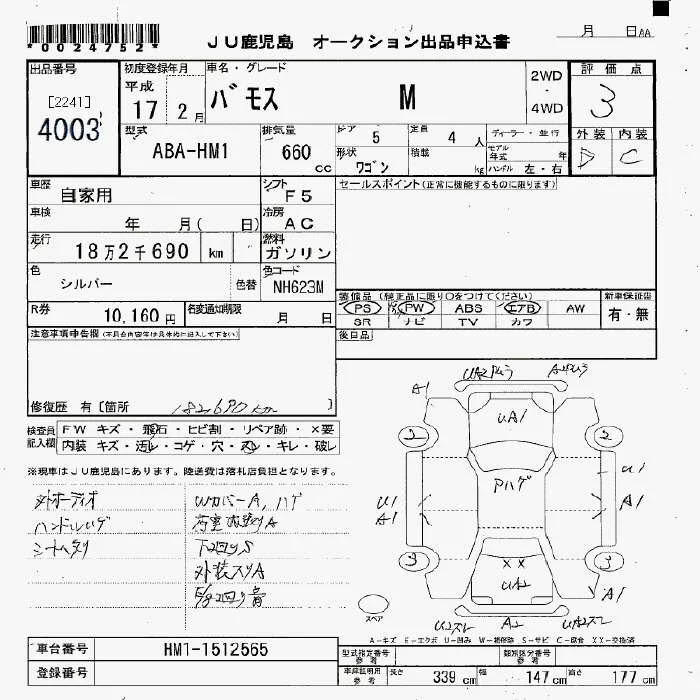 *0024752*
JU鹿児島 オークション出品申込書
月 日 AA
出品番号
[2241]
4003
初度登録年月
平成
17 2月
車名・グレード
バモス M
2WD
・
4WD
評価点
3
外装 内装
D C
型式
ABA-HM1
排気量
660 cc
ドア 5
定員 4 人
形状 ワゴン
積載 kg
ディーラー・並行
モデル年式 年
ハンドル 左・右
車歴
自家用
シフト
F5
セールスポイント(正常に機能するものに限ります)
車検
年 月( 日)
冷房
AC
走行
18万2千690 km
燃料
ガソリン
色
シルバー
色替
色コード
NH623M
装備品(純正品に限り○をつけてください)
PS PW ABS エアB AW
SR ナビ TV カワ
新車保証書
有・無
R券
10,160円
名変通知期限
月 日
注意事項申告欄(不具合内容等は具体的に記入して下さい)
後日品
修復歴 有〔箇所 182,690 km 〕
検査員記入欄
FW キズ・飛石・ヒビ割・リペア跡・×要
内装 キズ・汚レ・コゲ・穴・スレ・キレ・破レ
※現車はJU鹿児島にあります。陸送費は落札店負担となります。
外オーディオ
ハンドルハゲ
WカバーA,ハゲ
下回りS
外装スリA
A1
UA1
2 2
Pハゲ
U1
A1
U1
A1
3 3
××
UA2
A1
スペア
A2
A-キズ E-エクボ U-凹み W-補修跡 S-サビ C-腐食 XX-交換済
車台番号
HM1-1512565
登録番号
型式指定番号
参考
類別区分番号
参考
車庫証明用
参考
長さ 339 cm
幅 147 cm
高さ 177 cm